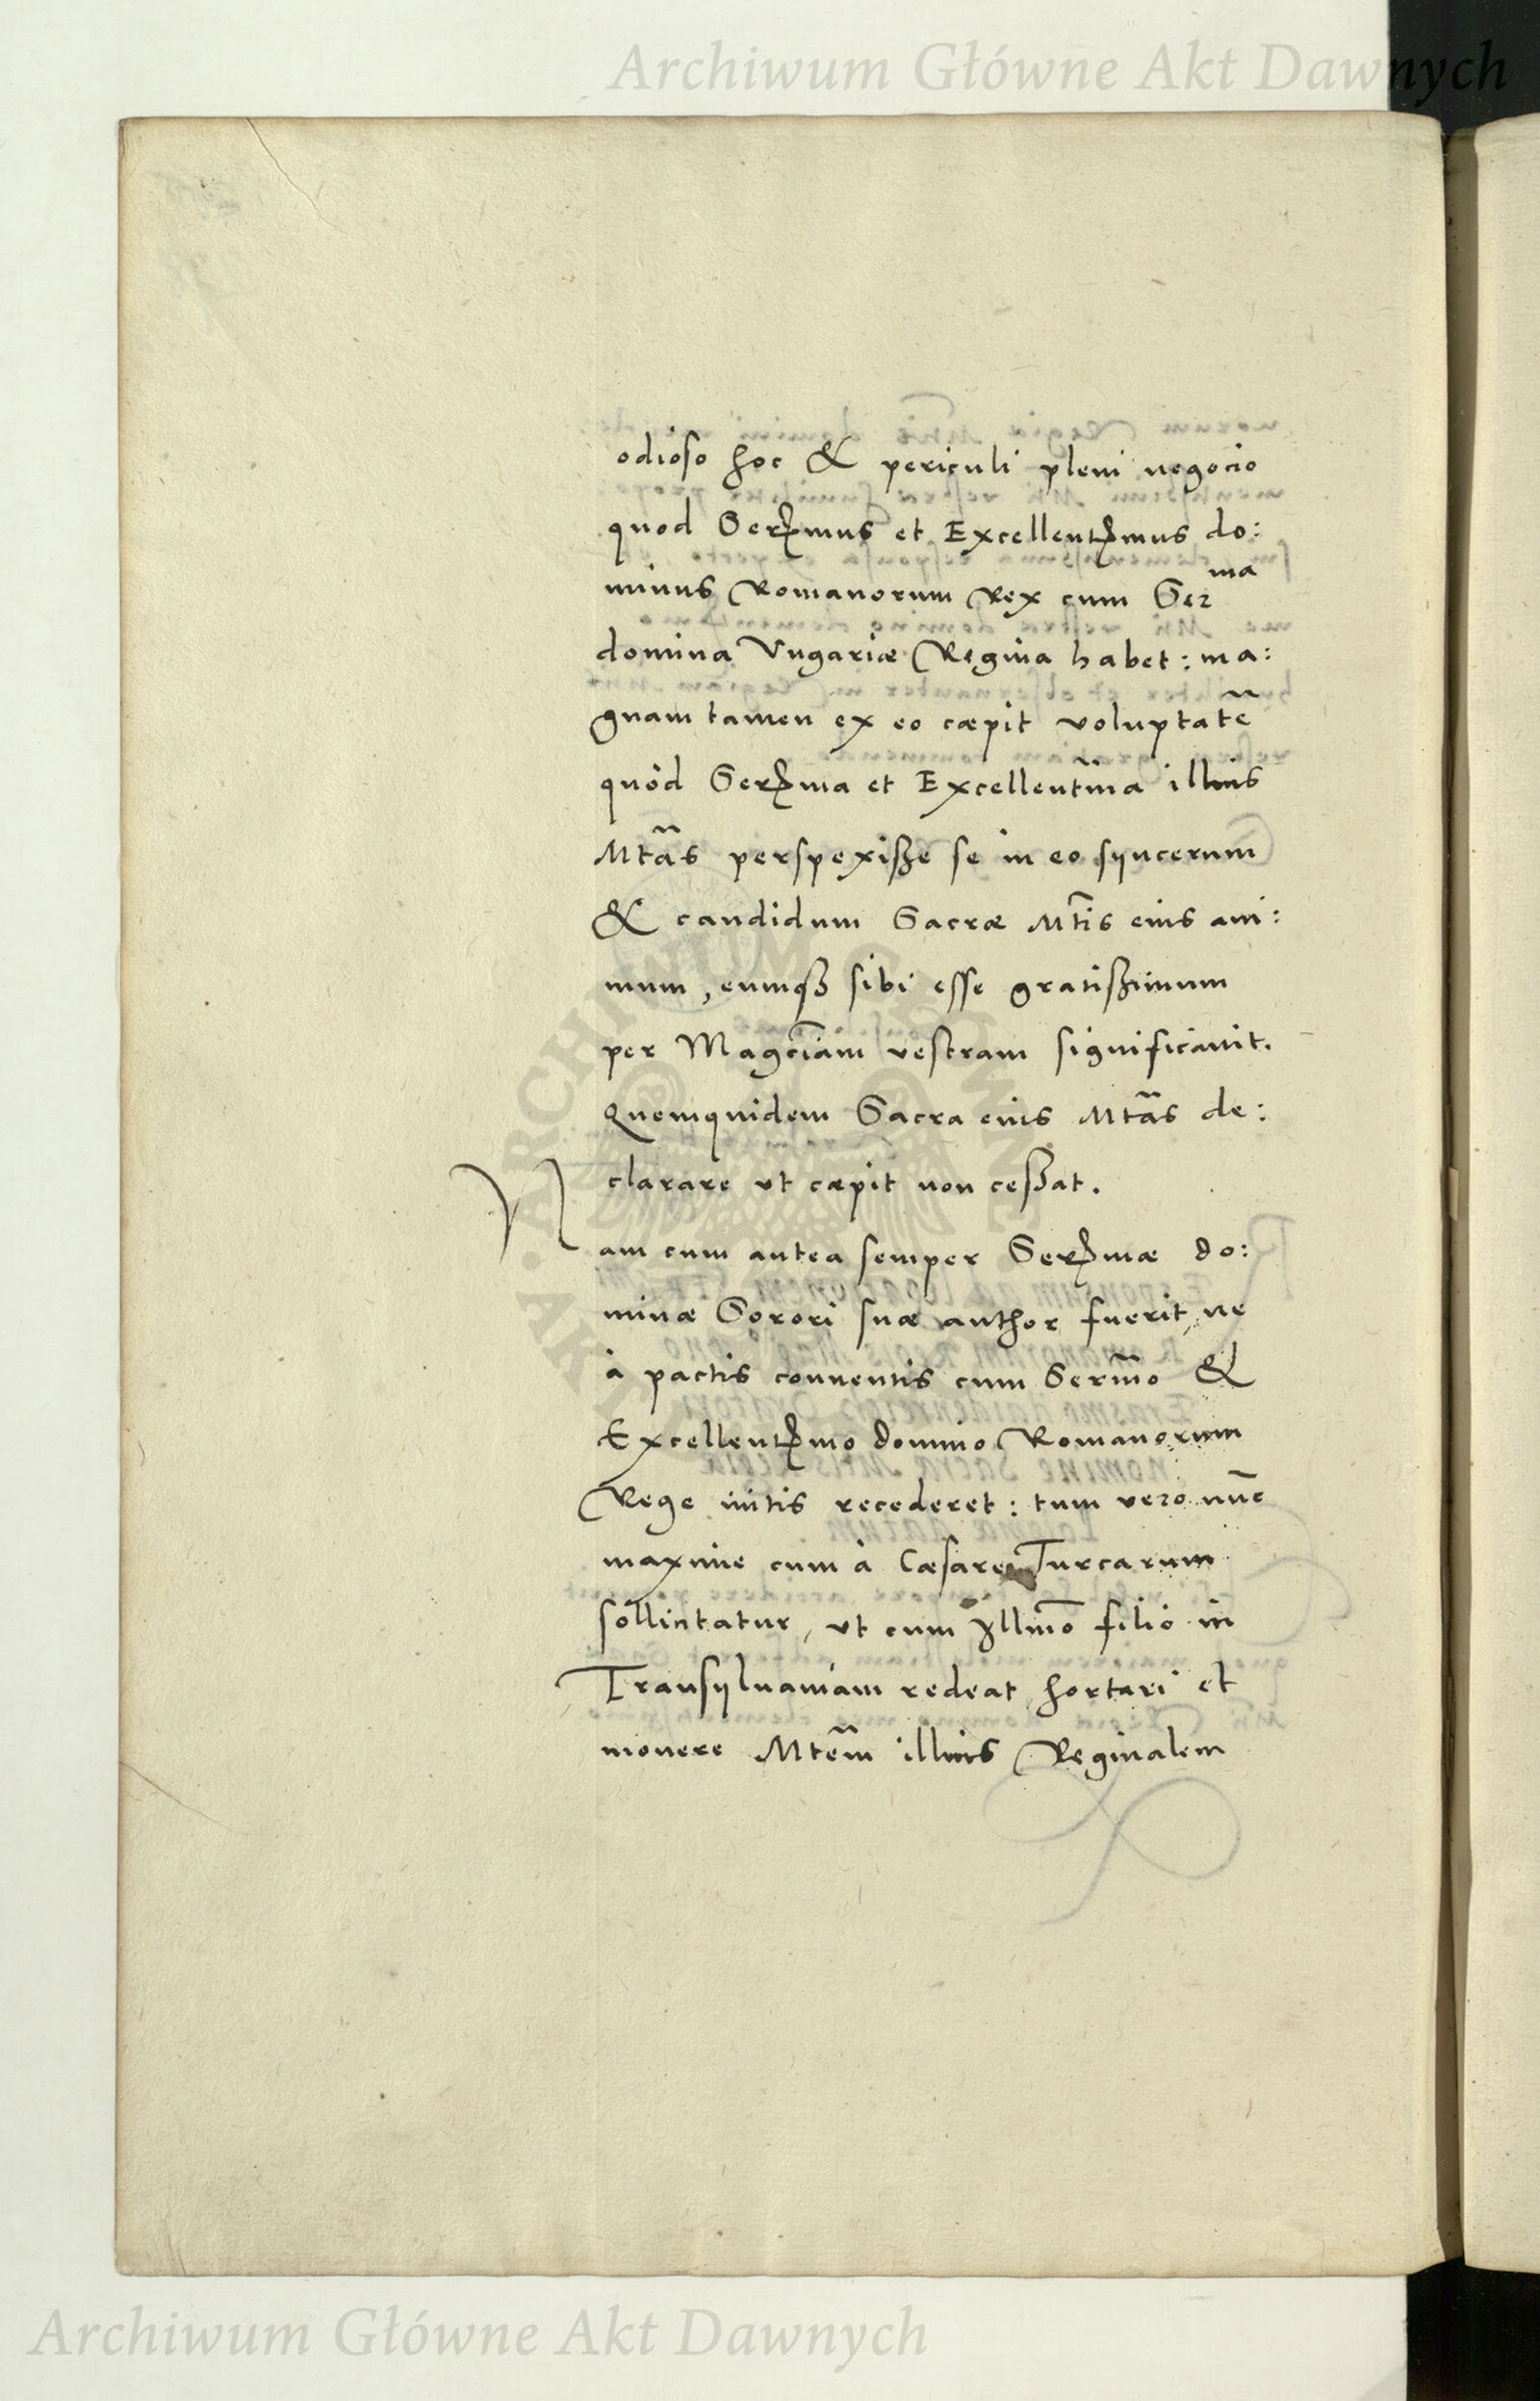 Archiwum Główne Akt Dawnych
odioso hoc & periculi pleni negocio
quod Serꝫmus et Excellentꝫmus do:
minus Romanorum Rex cum Serma
domina Vngariæ Regina habet: ma:
gnam tamen ex eo cæpit voluptatē
quòd Serꝫma et Excellentma illius
Mtãs perspexiße se in eo syncerum
& candidum Sacræ Mt̃is eius ani:
mum, eumqß sibi esse gratißimum
per Magciam vestram significauit.
Quemquidem Sacra eius Mtãs de:
clarare vt cæpit non ceßat.
Nam cum antea semper Serꝫmæ do:
minæ Sorori suæ author fuerit, ne
à pactis conuentis cum Serm̃o &
Excellentꝫmo domino Romanorum
Rege initis recederet: tum vero nũc
maxime cum à Cæsare Turcarum
sollicitatur, vt cum Illm̃o filio in
Transyluaniam redeat hortari et
monere Mtẽm illius Reginalem
ARCHIWUM GŁÓWNE AKT
Archiwum Główne Akt Dawnych